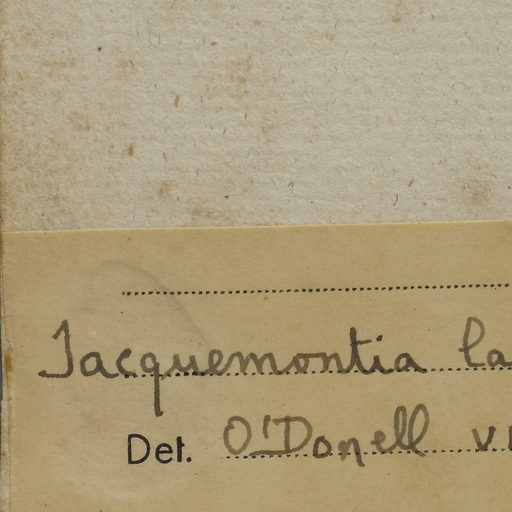 Jacquemontia la
Det. O'Donell vi